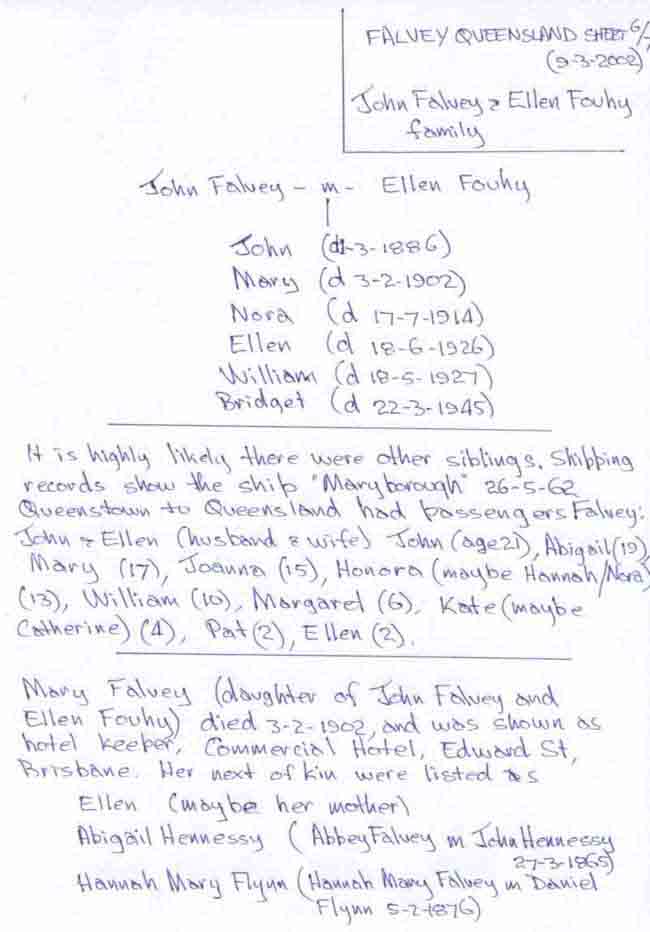 FALVEY QUEENSLAND SHEET 6/
(9-3-2002)
John Falvey & Ellen Fouhy
family
John Falvey - m - Ellen Fouhy
John (d 1-3-1886)
Mary (d 3-2-1902)
Nora (d 17-7-1914)
Ellen (d 18-6-1926)
William (d 18-5-1927)
Bridget (d 22-3-1945)
It is highly likely there were other siblings. Shipping
records show the ship "Maryborough" 26-5-62
Queenstown to Queensland had passengers Falvey:
John & Ellen (husband & wife) John (age 21), Abigail (19),
Mary (17), Joanna (15), Honora (maybe Hannah/Nora)
(13), William (10), Margaret (6), Kate (maybe
Catherine) (4), Pat (2), Ellen (2).
Mary Falvey (daughter of John Falvey and
Ellen Fouhy) died 3-2-1902, and was shown as
hotel keeper, Commercial Hotel, Edward St,
Brisbane. Her next of kin were listed as
Ellen (maybe her mother)
Abigail Hennessy (Abbey Falvey m John Hennessy
27-3-1865)
Hannah Mary Flynn (Hannah Mary Falvey m Daniel
Flynn 5-2-1876)